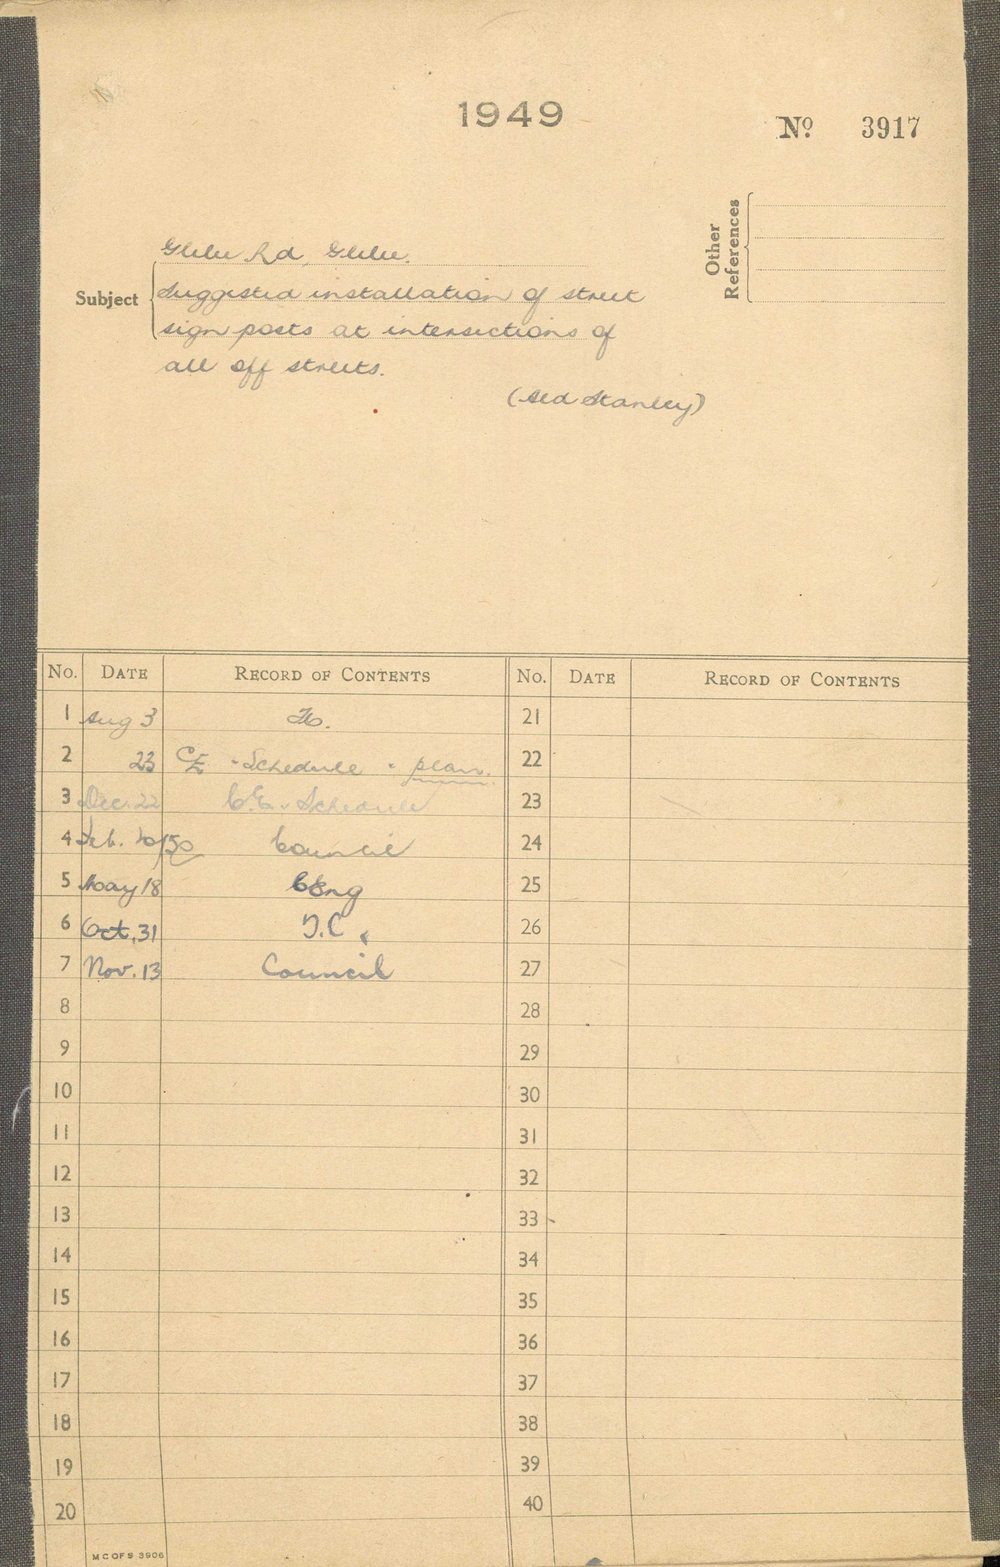 1949
No 3917
Other References
Glebe Rd, Glebe.
Subject
Suggested installation of street
sign posts at intersections of
all off streets.
(Ald Stanley)
No. DATE RECORD OF CONTENTS No. DATE RECORD OF CONTENTS
1 Aug 3 21
2 23 CE - Schedule - plan. 22
3 Dec. 22 C.E. - Schedule 23
4 Feb. 20/50 Council 24
5 May 18 CEng 25
6 Oct. 31 T.C. 26
7 Nov. 13 Council 27
8 28
9 29
10 30
11 31
12 32
13 33
14 34
15 35
16 36
17 37
18 38
19 39
20 40
M C OF S 3906